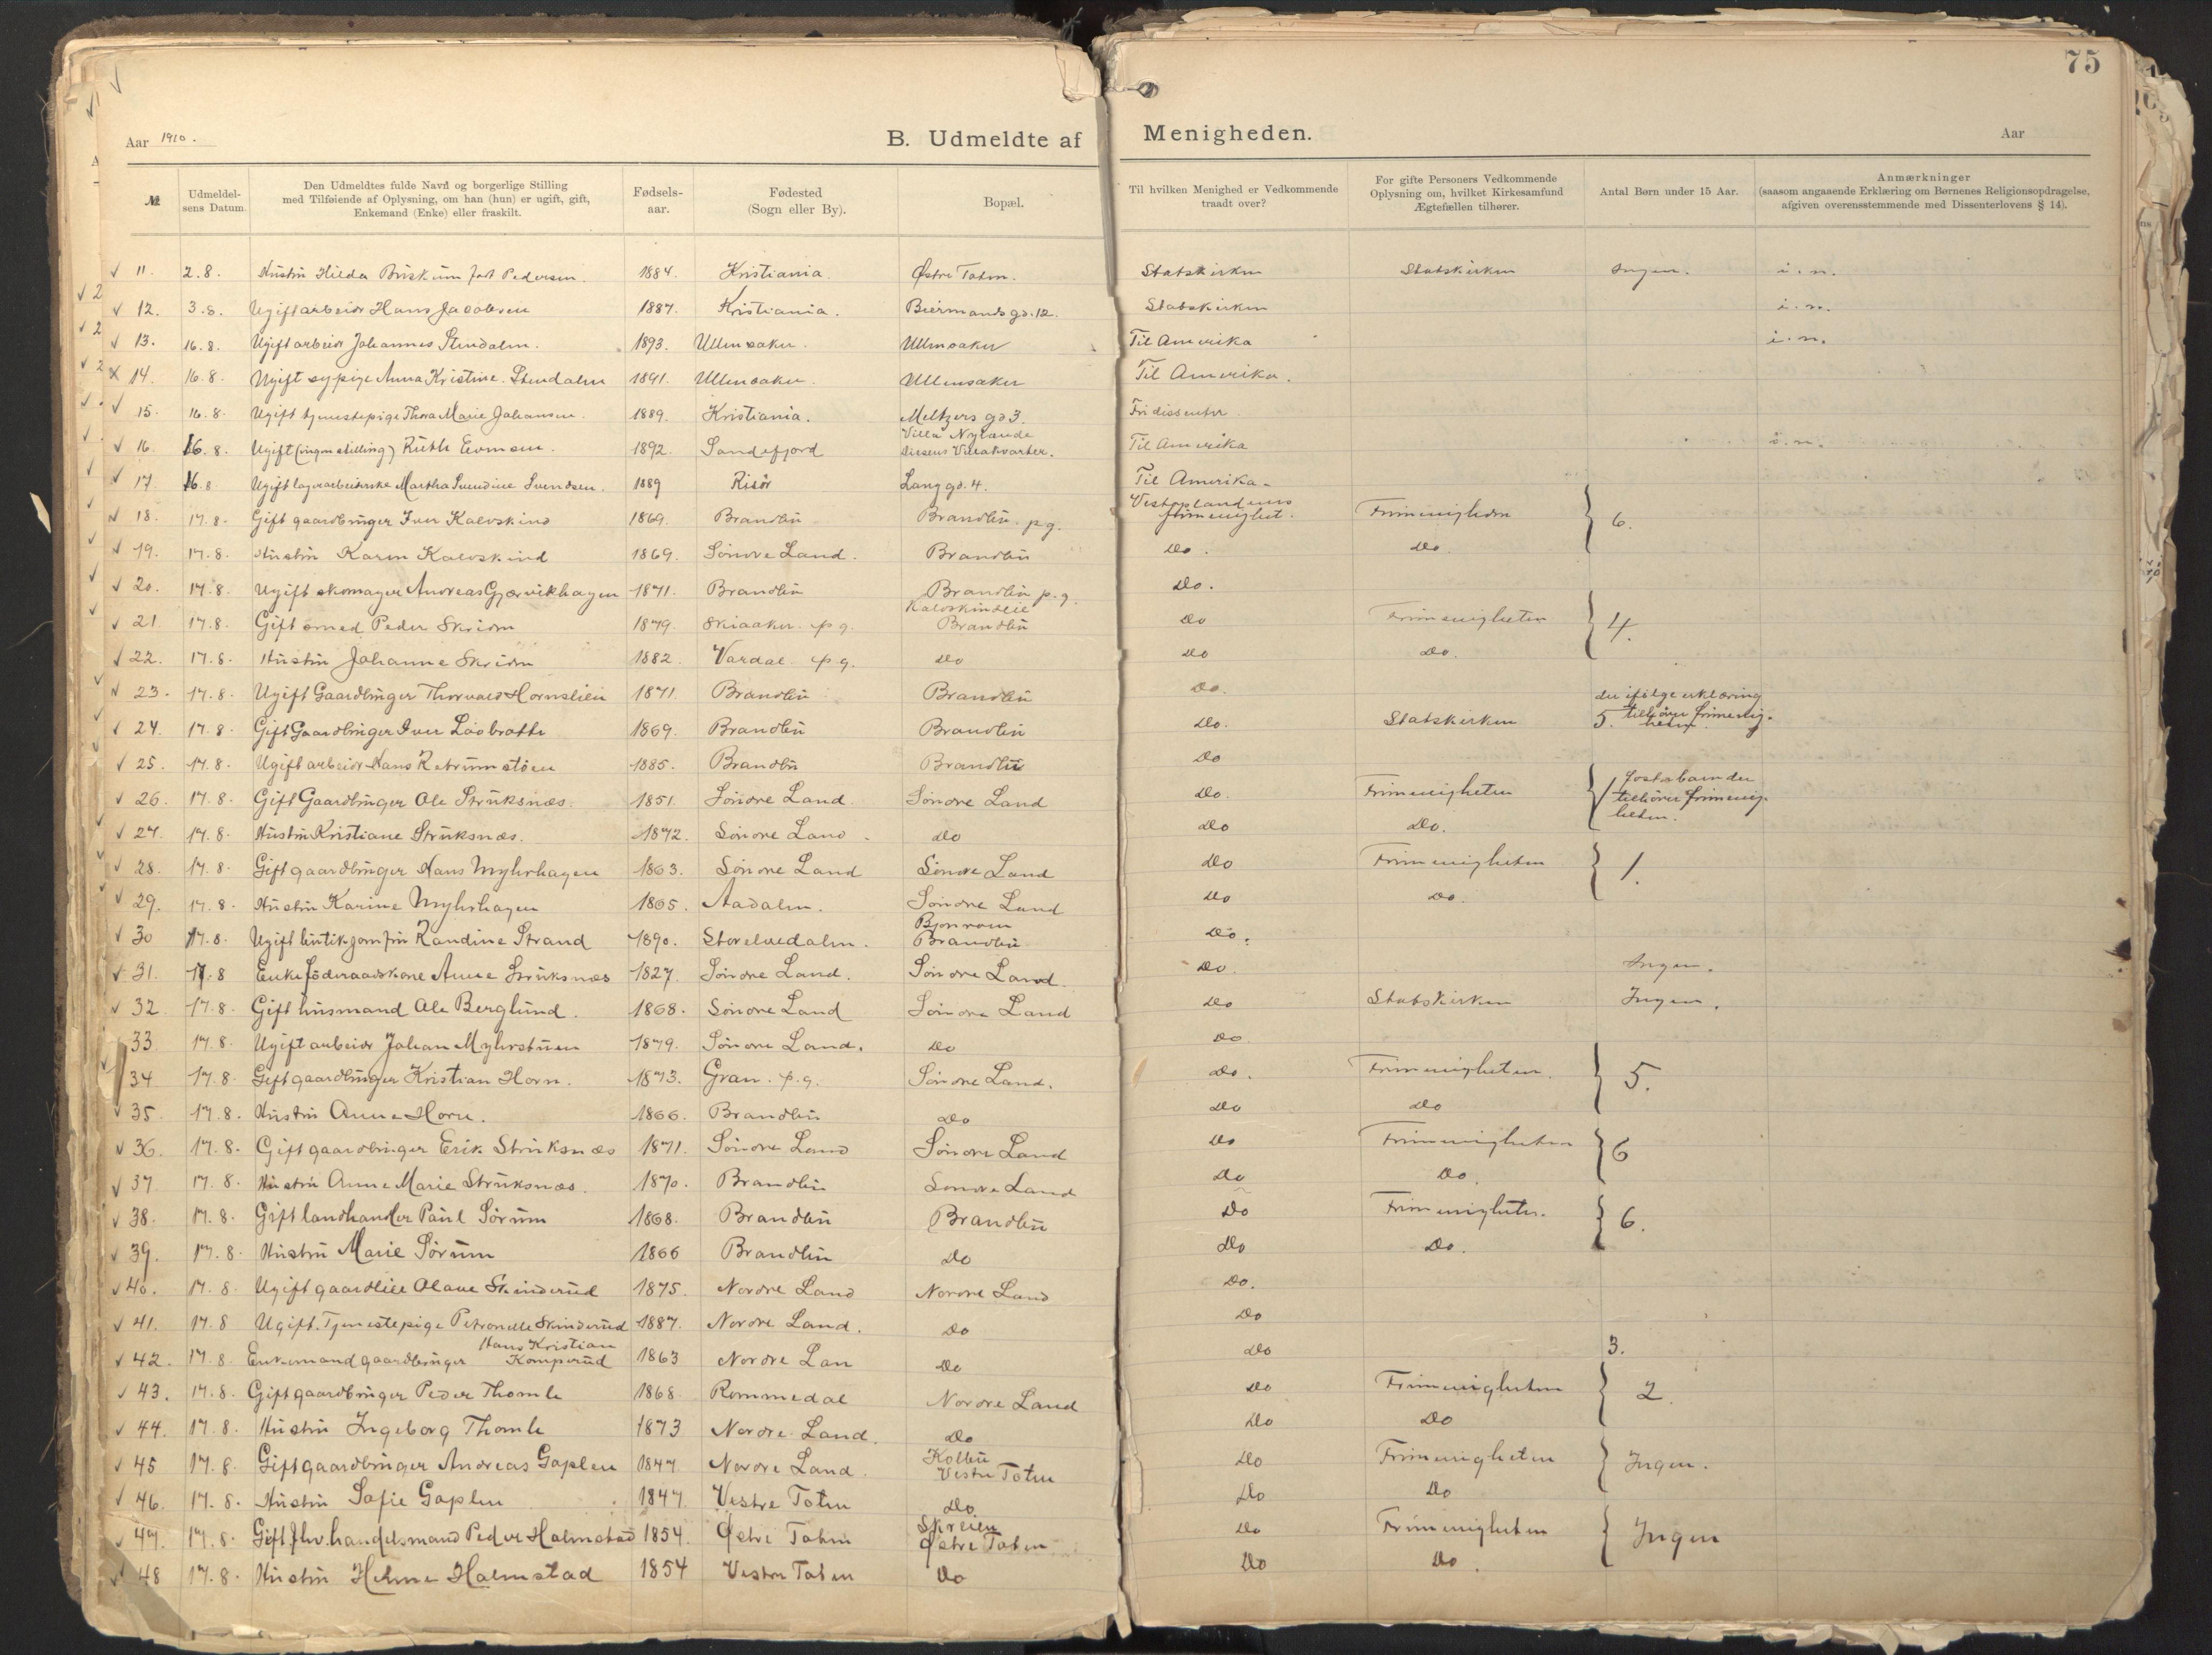 75
Aar 1910.
B. Udmeldte af Menigheden.
Aar
№
Udmeldelsens Datum.
Den Udmeldtes fulde Navn og borgerlige Stilling med Tilføiende af Oplysning, om han (hun) er ugift, gift, Enkemand (Enke) eller fraskilt.
Fødselsaar.
Fødested (Sogn eller By).
Bopæl.
Til hvilken Menighed er Vedkommende traadt over?
For gifte Personers Vedkommende Oplysning om, hvilket Kirkesamfund Ægtefællen tilhører.
Antal Børn under 15 Aar.
Anmærkninger (saasom angaaende Erklæring om Børnenes Religionsopdragelse, afgiven overensstemmende med Dissenterlovens § 14).
11. 2.8. Hustru Hilda Briskum født Pedersen. 1884. Kristiania. Østre Toten. Statskirken Statskirken Ingen. i.n.
12. 3.8. Ugift arbeider Hans Jacobsen 1887. Kristiania. Biermandsgd. 12. Statskirken i.n.
13. 16.8. Ugift arbeider Johannes Stendalen. 1893. Ullensaker. Ullensaker Til Amerika i.n.
14. 16.8. Ugift sypige Anna Kristine Stendalen 1891. Ullensaker. Ullensaker Til Amerika.
15. 16.8. Ugift tjenestepige Thora Marie Johansen. 1889. Kristiania. Meltzers gd 3. Fri dissenter.
16. 16.8. Ugift (ingen stilling) Ruth Evensen. 1892. Sandefjord Villa Nylænde Villakvarter. Til Amerika i.n.
17. 16.8 Ugift lagerarbeiderske Martha Svendine Svendsen. 1889 Risör Langgd. 4. Til Amerika.
18. 17.8. Gift gaardbruger Iver Kalvskind 1869. Brandbu Brandbu p.g. Vestoplandenes frimenighet. Frimenigheden } 6.
19. 17.8. Hustru Karen Kalvskind 1869. Söndre Land. Brandbu Do. Do.
20. 17.8. Ugift skomager Andreas Gjærvikhagen 1871. Brandbu Brandbu p.g. Do.
21. 17.8. Gift smed Peder Skriden 1879. Skiaaker p.g. Kalvskindeie Brandbu Do Frimenigheten } 4.
22. 17.8. Hustru Johanne Skriden 1882. Vardal p.g. Do Do Do.
23. 17.8. Ugift Gaardbruger Thorvald Hornslien 1871. Brandbu Brandbu Do.
24. 17.8. Gift Gaardbruger Iver Lösbratte 1869. Brandbu Brandbu Do. Statskirken 5. der ifölge erklæring tilhörer frimenigheten.
25. 17.8. Ugift arbeider Hans Retrumstöen 1885. Brandbu Brandbu Do
26. 17.8. Gift Gaardbruger Ole Struksnæs. 1851. Söndre Land. Söndre Land Do. Frimenigheten } 1 fosterbarn der tilhörer frimenigheten.
27. 17.8. Hustru Kristiane Struksnæs. 1872. Söndre Land. do Do Do.
28. 17.8. Gift gaardbruger Hans Myhrhagen 1863. Söndre Land Söndre Land Do Frimenigheten } 1.
29. 17.8. Hustru Karine Myhrhagen 1865. Aadalen. Söndre Land Do Do.
30 17.8. Ugift butikjomfru Randine Strand 1890. Storelvedalen. Bjonroa Brandbu Do.
31. 17.8 Enke föderaadskone Anne Struksnæs 1827. Söndre Land. Söndre Land Do. Ingen.
32. 17.8. Gift husmand Ole Berglund. 1868. Söndre Land Söndre Land Do Statskirken Ingen.
33 17.8. Ugift arbeider Johan Myhrstuen 1879. Söndre Land. Do Do.
34 17.8. Gift gaardbruger Kristian Horn. 1873. Gran. p.g. Söndre Land. Do. Frimenigheten. } 5.
35. 17.8. Hustru Anne Horn. 1866. Brandbu Do Do Do
36. 17.8. Gift gaardbruger Erik Struksnæs 1871. Söndre Land Söndre Land Do Frimenigheten } 6
37 17.8. Hustru Anne Marie Struksnæs. 1870. Brandbu Söndre Land Do Do.
38. 17.8. Gift landhandler Paul Sörum 1868. Brandbu Brandbu Do Frimenigheten. } 6.
39. 17.8. Hustru Marie Sörum 1866 Brandbu Do Do Do.
40. 17.8. Ugift gaardeier Olave Skinderud 1875. Nordre Land Nordre Land Do.
41. 17.8 Ugift. Tjenestepige Petronelle Skinderud 1887. Nordre Land. Do Do
42. 17.8. Enkemand gaardbruger Hans Kristian Komperud 1863 Nordre Lan Do Do 3.
43. 17.8. Gift gaardbruger Peder Thomle 1868. Rommedal Nordre Land Do Frimenigheten } 2.
44. 17.8. Hustru Ingeborg Thomle 1873 Nordre Land. Do Do Do
45 17.8. Gift gaardbruger Andreas Gaplen 1847 Nordre Land. Kolbu Vestre Toten Do Frimenigheten } Ingen.
46. 17.8. Hustru Sofie Gaplen 1847. Vestre Toten Do. Do Do
47. 17.8. Gift fhv. handelsmand Peder Halmstad 1854. Østre Toten Skreien Østre Toten Do Frimenigheten } Ingen
48 17.8. Hustru Helene Halmstad 1854 Vestre Toten Do Do Do.